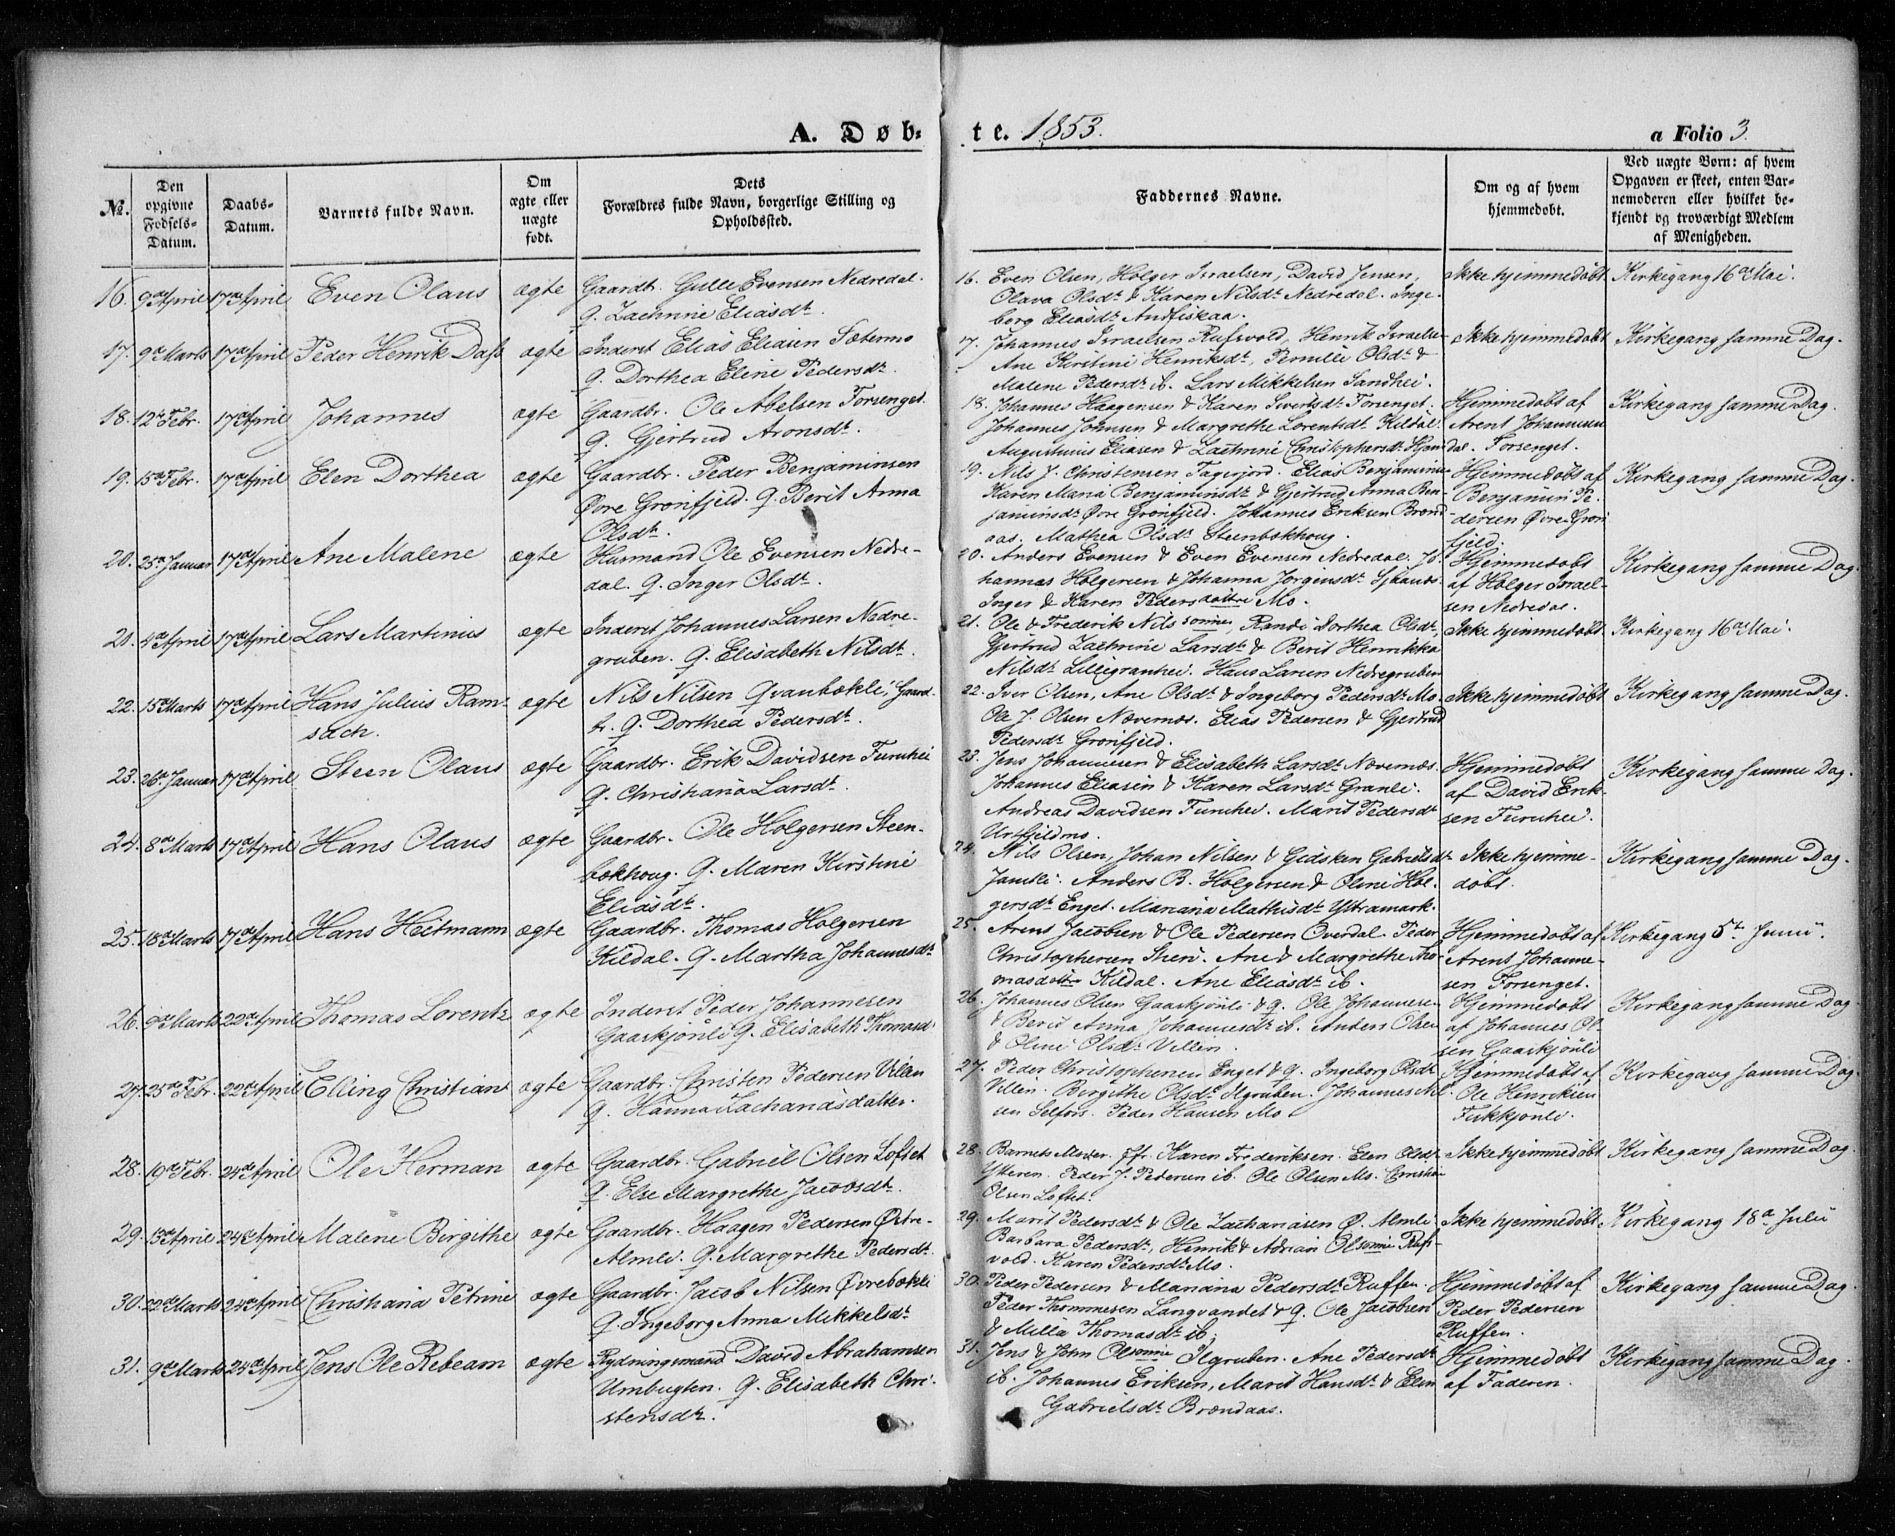 A. Døb-
te. 1853.
a Folio 3.
№.
Den opgivne Fødsels-Datum.
Daabs-Datum.
Barnets fulde Navn.
Om ægte eller uægte født.
Dets Forældres fulde Navn, borgerlige Stilling og Opholdssted.
Faddernes Navne.
Om og af hvem hjemmedøbt.
Ved uægte Børn: af hvem Opgaven er skeet, enten Barnemoderen eller hvilket bekjendt og troværdigt Medlem af Menigheden.
16. 9de April 17de April Even Olaus ægte Gaardb. Gulle Evensen Nedredal.
Q. Zachrine Eliasdt.
16. Even Olsen, Holger Israelsen, David Jensen,
Olava Olsdt. & Karen Nilsdt. Nedredal. Inge-
borg Eliasdt. Andfiskaa.
Ikke hjemmedøbt
Kirkegang 16de Mai.
17. 9de Marts 17de April Peder Henrik Dass ægte Inderst Elias Eliasen Sæternes
Q. Dorthea Eline Pedersdt.
17. Johannes Israelsen Rufsvold, Henrik Israelsen
Ane Kirstine Henriksdt., Pernille Olsdt. &
Malene Pedersdt. ib. Lars Mikkelsen Sandhei.
Ikke hjemmedøbt
Kirkegang samme Dag.
18. 12te Febr. 17de April Johannes ægte Gaardbr. Ole Abelsen Forsenget.
Q. Gjertrud Aronsdt.
18. Johannes Haagensen & Karen Sivertsdt. Forsenget.
Johannes Johnsen & Margrethe Lorentsdt. Kildal.
Augustinus Eliasen & Zachrine Christophersdt.
Hjemmedøbt af
Arent Johannesen
Forsenget.
Kirkegang samme Dag.
19. 15de Febr. 17de April Elen Dorthea ægte Gaardbr. Peder Benjaminsen
Øvre Grønfjeld. Q. Berit Anna
Olsdt.
19. Nils J. Christensen Fagerjord. Elias Benjaminsen
Karen Maria Benjaminsdt. & Gjertrud Anna Ben-
jaminsdt. Øvre Grønfjeld. Johannes Eriksen Brænd-
aas. Mathea Olsdt. Steenbækhoug.
Hjemmedøbt af
Benjamin Pe-
dersen Øvre Grøn-
fjeld.
Kirkegang samme Dag.
20. 25de Januar 17de April Ane Malene ægte Husmand Ole Evensen Nedre-
dal. Q. Inger Olsdt.
20. Anders Evensen & Even Evensen Nedredal. Jo-
hannas Holgersen & Johanna Jørgensdt.
Inger & Karen Pedersdøttre Mo.
Hjemmedøbt
af Holger Israel-
sen Nedredal.
Kirkegang samme Dag
21. 4de April 17de April Lars Martinius ægte Inderst Johannes Larsen Nedre-
gruben. Q. Elisabeth Nilsdt.
21. Ole & Frederik Nilssønner, Randi Dorthea Olsdt.,
Gjertrud Zachrine Larsdt. & Berit Henrikka
Nilsdt. Lillegranhei. Hans Larsen Nedregruben
Ikke hjemmedøbt
Kirkegang 16de Mai.
22. 15de Marts 17de April Hans Julius Ram-
sach.
ægte Nils Nilsen Qvanbækli, Gaard-
b. Q. Dorthea Pedersdt.
22. Iver Olsen, Ane Olsdt. & Ingeborg Pedersdt. Mo
Ole J. Olsen Nævernæs. Elias Pedersen & Gjertrud
Pedersdt. Grønfjeld.
Ikke hjemmedøbt
Kirkegang samme Dag.
23. 26de Januar 17de April Steen Olaus ægte Gaardbr. Erik Davidsen Furuhei
Q. Christiana Larsdt.
23. Jens Johannesen & Elisabeth Larsdt. Nævernæs.
Johannes Eliasen & Karen Larsdt. Granli.
Andreas Davidsen Furuhei. Marit Pedersdt.
Urtfjeldmo.
Hjemmedøbt
af David Erik-
sen Furuhei.
Kirkegang samme Dag.
24. 8de Marts 17de April Hans Olaus ægte Gaardbr. Ole Holgersen Steen-
bækhoug. Q. Maren Kirstine
Eliasdt.
24. Nils Olsen, Johan Nilsen & Gidsken Gabrielsdt.
Jamtli. Anders B. Holgersen & Oline Hol-
gersdt. Enget. Mariana Mathisdt. Ytramark.
Ikke hjemme-
døbt.
Kirkegang samme Dag.
25. 18de Marts 17de April Hans Heitmann ægte Gaardbr. Thomas Holgersen
Kildal. Q. Martha Johannesdt.
25. Arens Jacobsen & Ole Pedersen Overdal. Peder
Christophersen Sten. Ane & Margrethe Tho-
masdøttre Kildal. Ane Eliasdt. ib.
Hjemmedøbt af
Arent Johanne-
sen Forsenget.
Kirkegang 5te Juni.
26. 9de Marts 22de April Thomas Lorentz ægte Inderst Peder Johannesen
Gaaskjønli Q. Elisabeth Thomasdt.
26. Johannes Olsen Gaaskjønli & Q. Ole Johannesen
& Berit Anna Johannesdt. ib. Anders Olsen
& Oline Olsdt. Villen.
Hjemmedøbt
af Johannes Ol-
sen Gaaskjönli
Kirkegang samme Dag
27. 25de Febr. 22de April Elling Christian ægte Gaardbr. Christen Pedersen Villen
Q. Hanna Zachariasdatter.
27. Peder Christophersen Enget & Q. Ingeborg Olsdt.
Villen. Birgithe Olsdt. Ilgruben. Johannes Nil-
sen Selfors. Peder Hansen Mo.
Hjemmedøbt af
Ole Henriksen
Fiskkjönli.
Kirkegang samme Dag.
28. 19de Febr. 24de April Ole Herman ægte Gaardbr. Gabriel Olsen Loftet
Q. Else Margrethe Jacobsdt.
28. Barnets Moder. Jfr. Karen Frederiksen. Elen Olsdt.
Ytteren. Peder J. Pedersen ib. Ole Olsen Mo. Christian
Olsen Loftet.
Ikke hjemmedøbt
Kirkegang samme Dag.
29. 13de April 24de April Malene Birgithe ægte Gaardbr. Haagen Pedersen Østre-
Almli. Q. Margrethe Pedersdt.
29. Marit Pedersdt. & Ole Zachariasen Ø. Almli
Barbara Pedersdt., Henrik & Adrian Olsønner Rufs-
vold. Karen Pedersdt. Mo.
Ikke hjemmedøbt
Kirkegang 18de Julii
30. 22de Marts 24de April Christiana Petrine ægte Gaardbr. Jacob Nilsen Øvrebækli
Q. Ingeborg Anna Mikkelsdt.
30. Peder Pedersen & Mariana Pedersdt. Ruffen.
Peder Thommesen Langvandet & Q. Ole Jacobsen
& Milla Thomasdt. ib.
Hjemmedøbt af
Peder Pedersen
Ruffen.
Kirkegang samme Dag.
31. 9de Marts 24de April Jens Ole Ribeam ægte Rydningsmand David Abrahamsen
Umbugten. Q. Elisabeth Chri-
stensdt.
31. Jens & John Olsønner Ilgruben. Ane Pedersdt.
ib. Johannes Eriksen, Marit Hansdt. & Elen
Gabrielsdt. Brændaas.
Hjemmedøbt
af Faderen.
Kirkegang samme Dag.